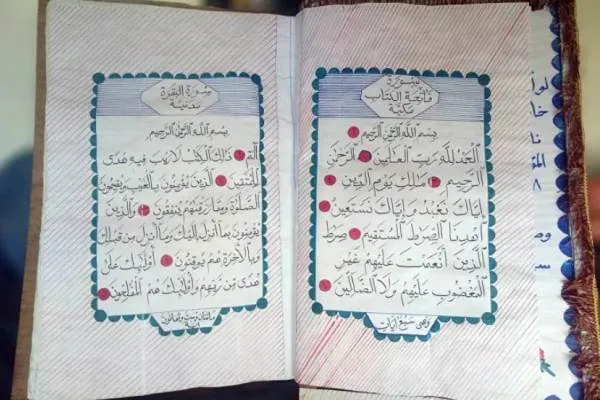 سورة
فاتحة الكتاب
مكية
بسم الله الرحمن الرحيم ١
الحمد لله رب العالمين ٢ الرحمن
الرحيم ٣ ملك يوم الدين ٤
إياك نعبد وإياك نستعين ٥
اهدنا الصرط المستقيم ٦ صرط
الذين أنعمت عليهم غير
المغضوب عليهم ولا الضالين ٧
وهي سبع آيات
سورة البقرة
مدنية
بسم الله الرحمن الرحيم
الم ١ ذلك الكتب لا ريب فيه هدى
للمتقين ٢ الذين يؤمنون بالغيب ويقيمون
الصلوة ومما رزقنهم ينفقون ٣ والذين
يؤمنون بما أنزل إليك وما أنزل من قبلك
وبالآخرة هم يوقنون ٤ أولئك على
هدى من ربهم وأولئك هم المفلحون ٥
مائتان وست وثمانون